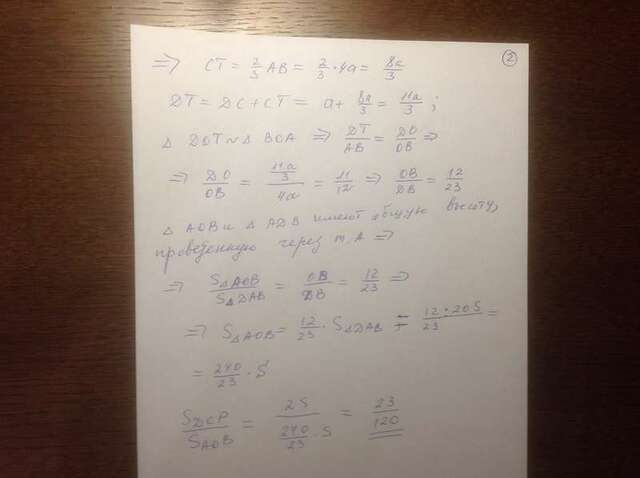 ②
=> CT = 2/3 AB = 2/3 · 4a = 8a/3
DT = DC + CT = a + 8a/3 = 11a/3 ;
△ DOT ~ △ BOA => DT/AB = DO/OB =>
=> DO/OB = (11a/3)/4a = 11/12 => OB/DB = 12/23
△ AOB и △ ADB имеют общую высоту,
проведенную через т. А =>
=> S△AOB/S△DAB = OB/DB = 12/23 =>
=> S△AOB = 12/23 · S△DAB = 12·20S/23 =
= 240/23 · S
SDCP/SAOB = 2S/(240/23 · S) = 23/120